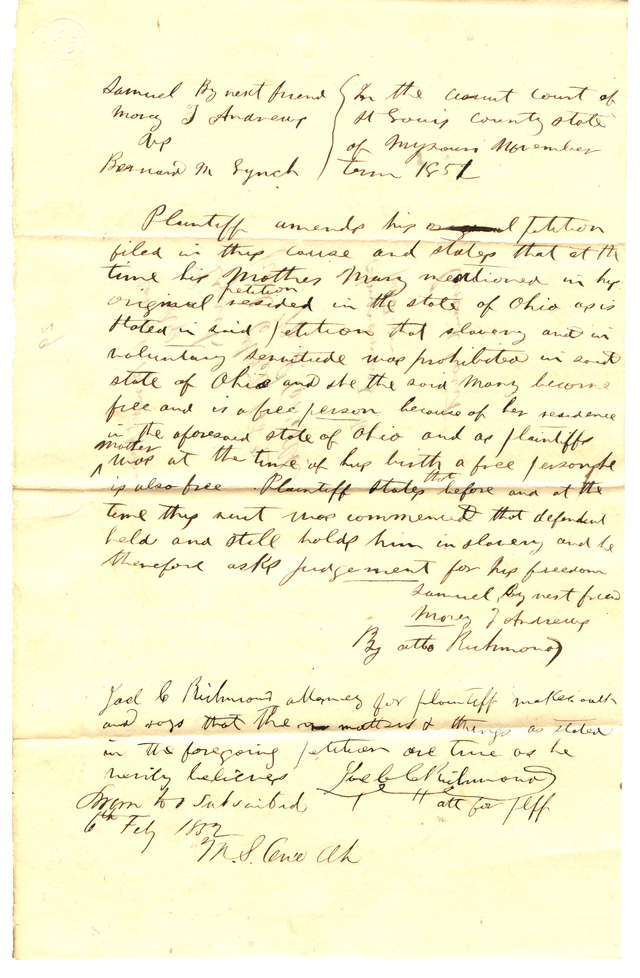 Samuel By next friend
Morey T Andrews
vs
Bernard M Lynch
In the circuit court of
St Louis county state
of Missouri November
term 1851
Plaintiff amends his petition
filed in this cause and states that at the
time his Mother Mary mentioned in his
original petition resided in the state of Ohio as is
stated in said petition that slavery and in
voluntary servitude was prohibited in said
state of Ohio and she the said Mary became
free and is a free person because of her residence
in the aforesaid state of Ohio and as plaintiffs
mother was at the time of his birth a free person he
is also free Plaintiff states that before and at the
time this suit was commenced that defendant
held and still holds him in slavery and he
therefore asks judgement for his freedom
Samuel, by next friend
Morey T Andrews
By atto Richmond
Joel C Richmond attorney for plaintiff makes oath
and says that the matters & things as stated
in the foregoing petition are true as he
verily believes Joel C Richmond
att for plff
Sworn to & subscribed
6th Feby 1852